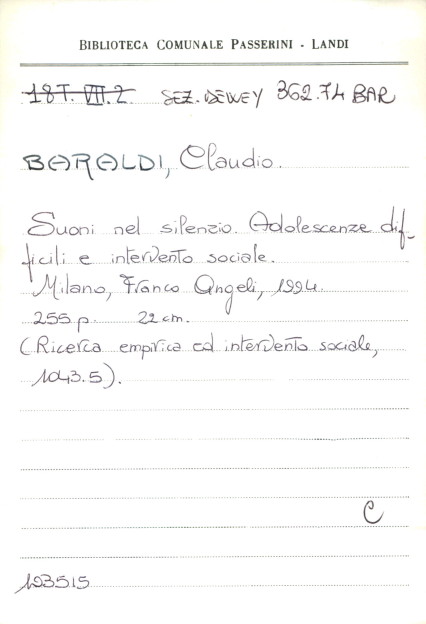 BIBLIOTECA COMUNALE PASSERINI - LANDI
18T. VII. 2 SEZ. DEWEY 362.74 BAR
BARALDI, Claudio.
Suoni nel silenzio. Adolescenze dif-
ficili e intervento sociale.
Milano, Franco Angeli, 1994.
255 p. 22 cm.
(Ricerca empirica ed intervento sociale,
1043.5).
C
193515